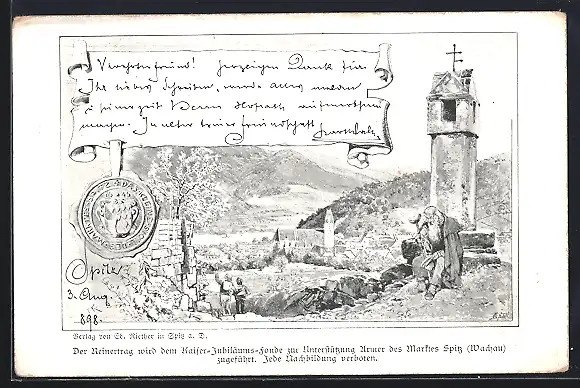 Verehrter Freund! Herzlichen Dank für
Ihr liebes Schreiben, werde alles
seinerzeit Herrn Hofrath aufmerksam
machen. In alter treuer Freundschaft
Spitz
3. Aug.
898.
Verlag von Ed. Riether in Spitz a. D.
Der Reinertrag wird dem Kaiser-Jubiläums-Fonde zur Unterstützung Armer des Marktes Spitz (Wachau)
zugeführt. Jede Nachbildung verboten.